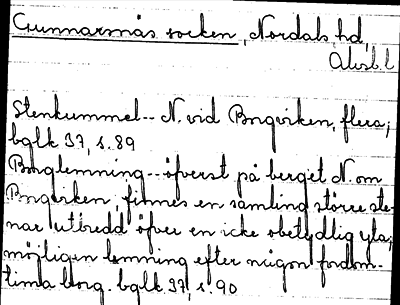 Gunnarsnäs socken, Nordals hd,
Älvsb. l
Stenkummel-- N. vid Bryviken, flera;
bglk 37, s. 89
Borglemning-- öfverst på berget N. om
Bryviken, finnes en samling större ste-
nar utbredd öfver en icke obetydlig yta;
möjligen lemning efter någon fordom-
tima borg. bglk. 37, s. 90